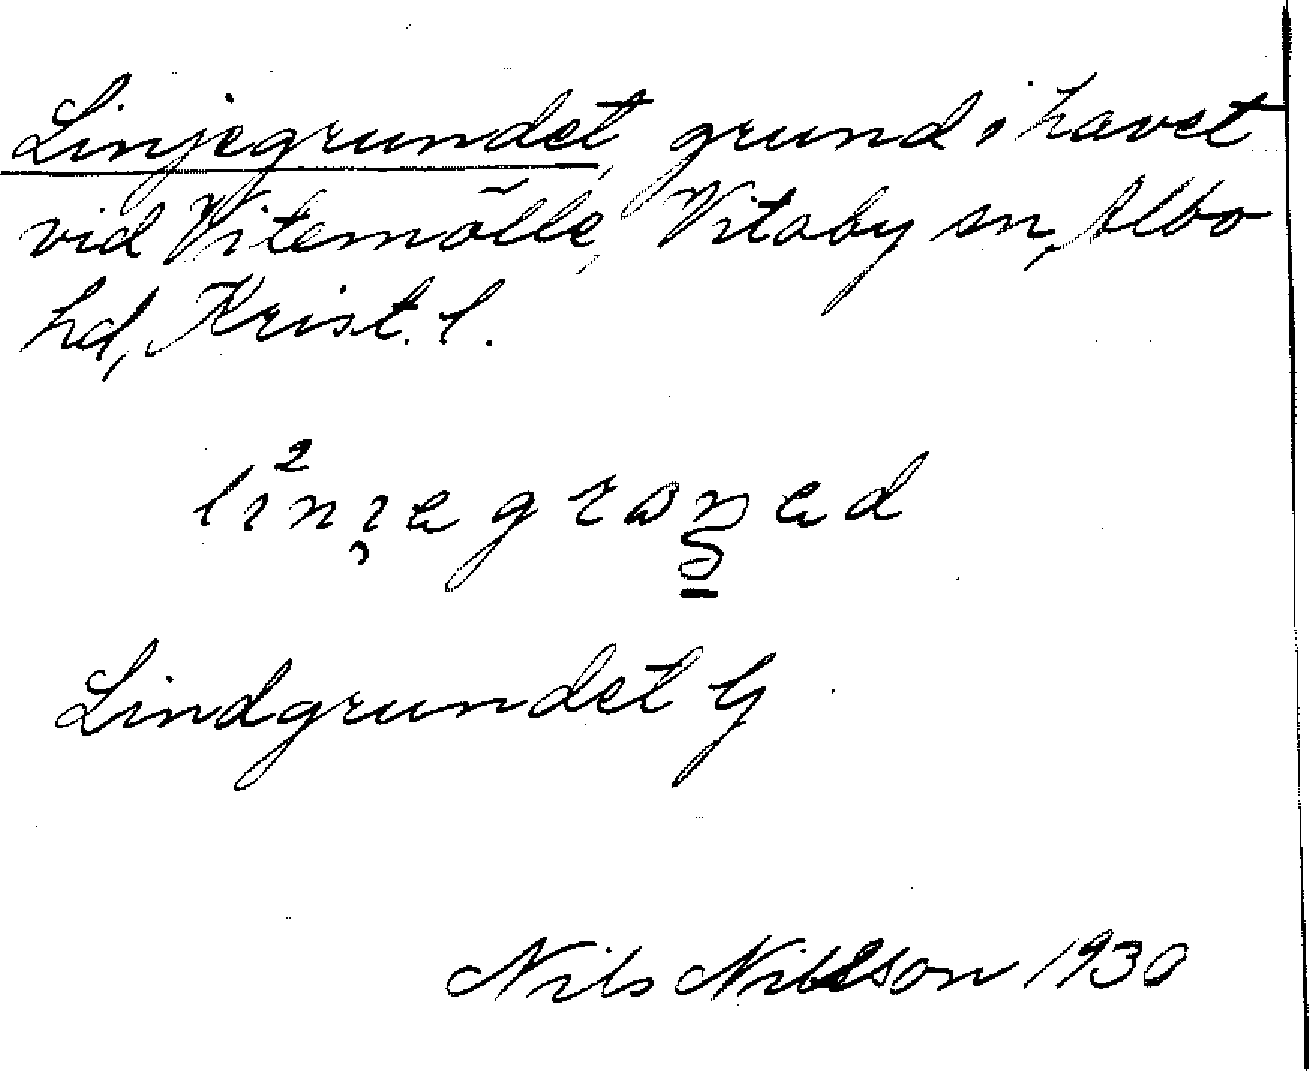 Linjegrundet, grund i havet
vid Vitemölle, Vitaby sn, Albo
hd, Krist. l.
Lindgrundet G
Nils Nilsson 1930